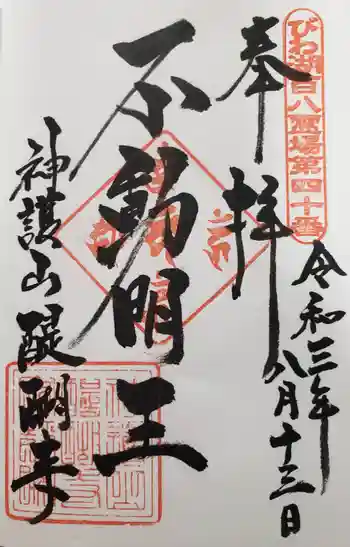 奉拝
びわ湖百八霊場第四十番
令和三年八月十三日
不動明王
神護山醍醐寺